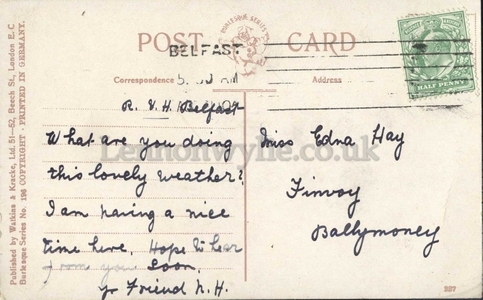 BURLESQUE SERIES
POST CARD
BELFAST
HALF PENNY
Correspondence
Address
R. V. H. Belfast
What are you doing
this lovely weather?
I am having a nice
time here. Hope to hear
from you soon,
yr Friend N. H.
Miss Edna Hay
Finvoy
Ballymoney
Lennonwylie.co.uk
Published by Watkins & Kracke, Ltd. 51-52, Beech St., London E.C.
Burlesque Series No. 196 COPYRIGHT - PRINTED IN GERMANY.